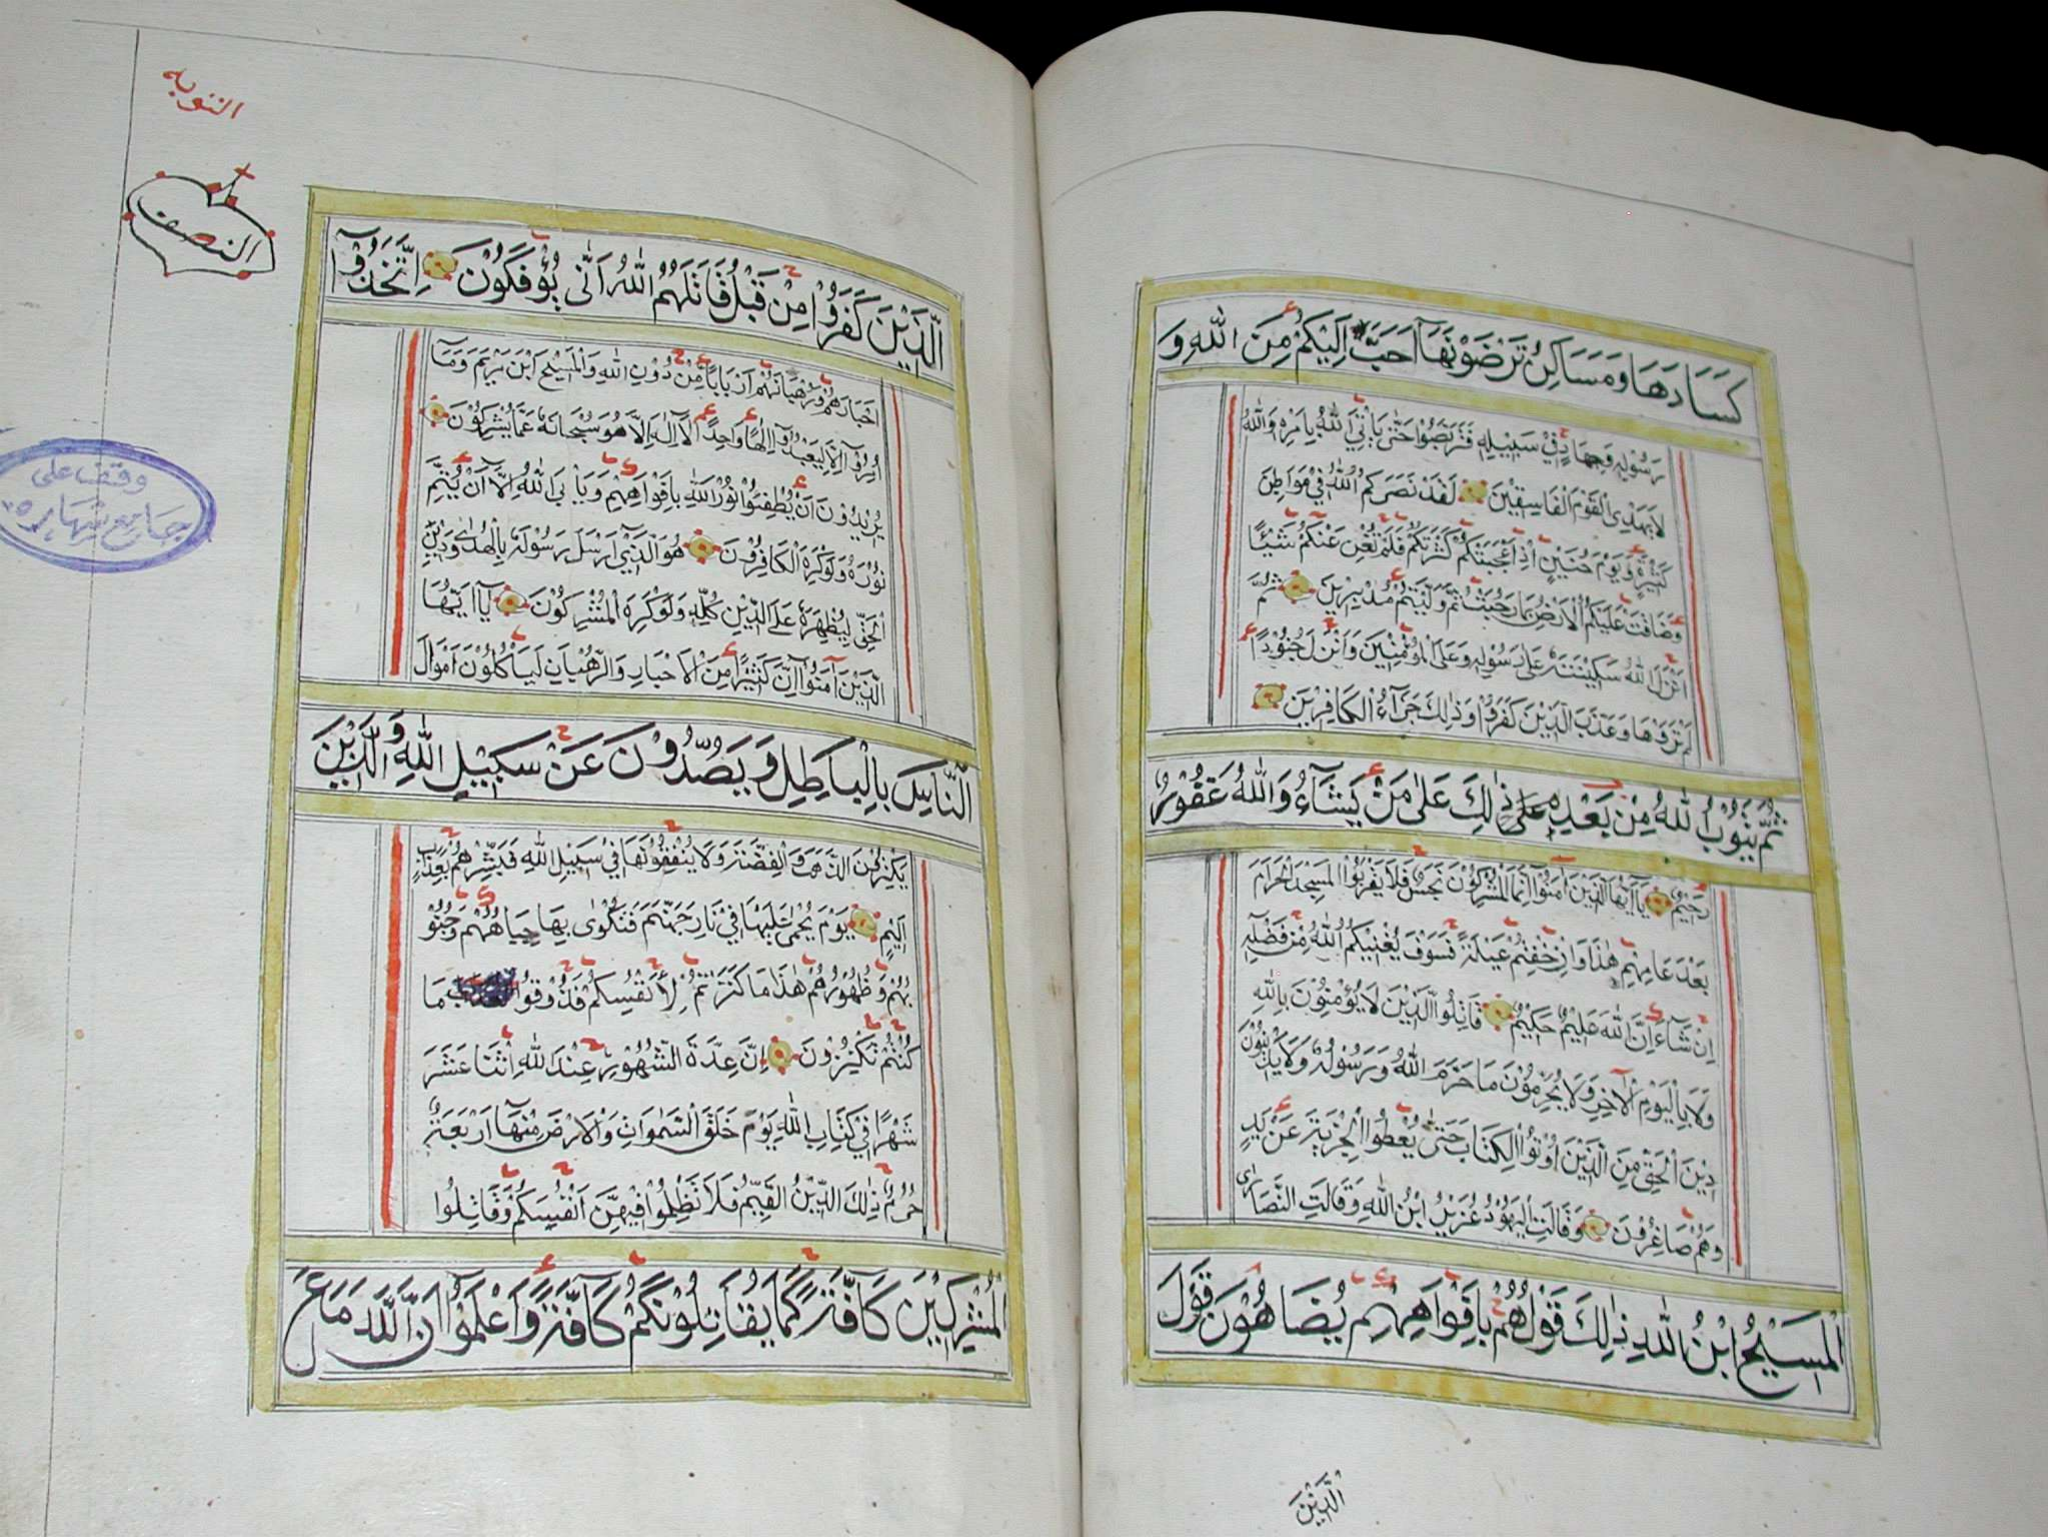 كَسَادَهَا وَمَسَاكِنُ تَرْضَوْنَهَا أَحَبَّ إِلَيْكُمْ مِنَ اللهِ وَ
رَسُولِهِ وَجِهَادٍ فِي سَبِيلِهِ فَتَرَبَّصُوا حَتّٰى يَأْتِيَ اللهُ بِأَمْرِهِ وَاللهُ
لَا يَهْدِي الْقَوْمَ الْفَاسِقِينَ لَقَدْ نَصَرَكُمُ اللهُ فِي مَوَاطِنَ
كَثِيرَةٍ وَيَوْمَ حُنَيْنٍ إِذْ أَعْجَبَتْكُمْ كَثْرَتُكُمْ فَلَمْ تُغْنِ عَنْكُمْ شَيْئًا
وَضَاقَتْ عَلَيْكُمُ الْأَرْضُ بِمَا رَحُبَتْ ثُمَّ وَلَّيْتُمْ مُدْبِرِينَ ثُمَّ
أَنْزَلَ اللهُ سَكِينَتَهُ عَلَى رَسُولِهِ وَعَلَى الْمُؤْمِنِينَ وَأَنْزَلَ جُنُودًا
لَمْ تَرَوْهَا وَعَذَّبَ الَّذِينَ كَفَرُوا وَذٰلِكَ جَزَآءُ الْكَافِرِينَ
ثُمَّ يَتُوبُ اللهُ مِنْ بَعْدِ ذٰلِكَ عَلٰى مَنْ يَشَآءُ وَاللهُ غَفُورٌ
رَحِيمٌ يَآ أَيُّهَا الَّذِينَ آمَنُوا إِنَّمَا الْمُشْرِكُونَ نَجَسٌ فَلَا يَقْرَبُوا الْمَسْجِدَ الْحَرَامَ
بَعْدَ عَامِهِمْ هٰذَا وَإِنْ خِفْتُمْ عَيْلَةً فَسَوْفَ يُغْنِيكُمُ اللهُ مِنْ فَضْلِهِ
إِنْ شَآءَ إِنَّ اللهَ عَلِيمٌ حَكِيمٌ قَاتِلُوا الَّذِينَ لَا يُؤْمِنُونَ بِاللهِ
وَلَا بِالْيَوْمِ الْآخِرِ وَلَا يُحَرِّمُونَ مَا حَرَّمَ اللهُ وَرَسُولُهُ وَلَا يَدِينُونَ
دِينَ الْحَقِّ مِنَ الَّذِينَ أُوتُوا الْكِتَابَ حَتّٰى يُعْطُوا الْجِزْيَةَ عَنْ يَدٍ
وَهُمْ صَاغِرُونَ وَقَالَتِ الْيَهُودُ عُزَيْرٌ ابْنُ اللهِ وَقَالَتِ النَّصَارٰى
الْمَسِيحُ ابْنُ اللهِ ذٰلِكَ قَوْلُهُمْ بِأَفْوَاهِهِمْ يُضَاهِؤُونَ قَوْلَ
الَّذِينَ
التوبه
النصف
الَّذِينَ كَفَرُوا مِنْ قَبْلُ قَاتَلَهُمُ اللهُ أَنّٰى يُؤْفَكُونَ اِتَّخَذُوا
أَحْبَارَهُمْ وَرُهْبَانَهُمْ أَرْبَابًا مِنْ دُونِ اللهِ وَالْمَسِيحَ ابْنَ مَرْيَمَ وَمَآ
أُمِرُوآ إِلَّا لِيَعْبُدُوآ إِلٰهًا وَاحِدًا لَآ إِلٰهَ إِلَّا هُوَ سُبْحَانَهُ عَمَّا يُشْرِكُونَ
يُرِيدُونَ أَنْ يُطْفِئُوا نُورَ اللهِ بِأَفْوَاهِهِمْ وَيَأْبَى اللهُ إِلَّآ أَنْ يُتِمَّ
نُورَهُ وَلَوْ كَرِهَ الْكَافِرُونَ هُوَ الَّذِي أَرْسَلَ رَسُولَهُ بِالْهُدٰى وَدِينِ
الْحَقِّ لِيُظْهِرَهُ عَلَى الدِّينِ كُلِّهِ وَلَوْ كَرِهَ الْمُشْرِكُونَ يَآ أَيُّهَا
الَّذِينَ آمَنُوآ إِنَّ كَثِيرًا مِنَ الْأَحْبَارِ وَالرُّهْبَانِ لَيَأْكُلُونَ أَمْوَالَ
النَّاسِ بِالْبَاطِلِ وَيَصُدُّونَ عَنْ سَبِيلِ اللهِ وَالَّذِينَ
يَكْنِزُونَ الذَّهَبَ وَالْفِضَّةَ وَلَا يُنْفِقُونَهَا فِي سَبِيلِ اللهِ فَبَشِّرْهُمْ بِعَذَابٍ
أَلِيمٍ يَوْمَ يُحْمٰى عَلَيْهَا فِي نَارِ جَهَنَّمَ فَتُكْوٰى بِهَا جِبَاهُهُمْ وَجُنُو
بُهُمْ وَظُهُورُهُمْ هٰذَا مَا كَنَزْتُمْ لِأَنْفُسِكُمْ فَذُوقُوا مَا
كُنْتُمْ تَكْنِزُونَ إِنَّ عِدَّةَ الشُّهُورِ عِنْدَ اللهِ اثْنَا عَشَرَ
شَهْرًا فِي كِتَابِ اللهِ يَوْمَ خَلَقَ السَّمٰوَاتِ وَالْأَرْضَ مِنْهَآ أَرْبَعَةٌ
حُرُمٌ ذٰلِكَ الدِّينُ الْقَيِّمُ فَلَا تَظْلِمُوا فِيهِنَّ أَنْفُسَكُمْ وَقَاتِلُوا
الْمُشْرِكِينَ كَآفَّةً كَمَا يُقَاتِلُونَكُمْ كَآفَّةً وَاعْلَمُوآ أَنَّ اللهَ مَعَ
وقف على
جامع شهاره